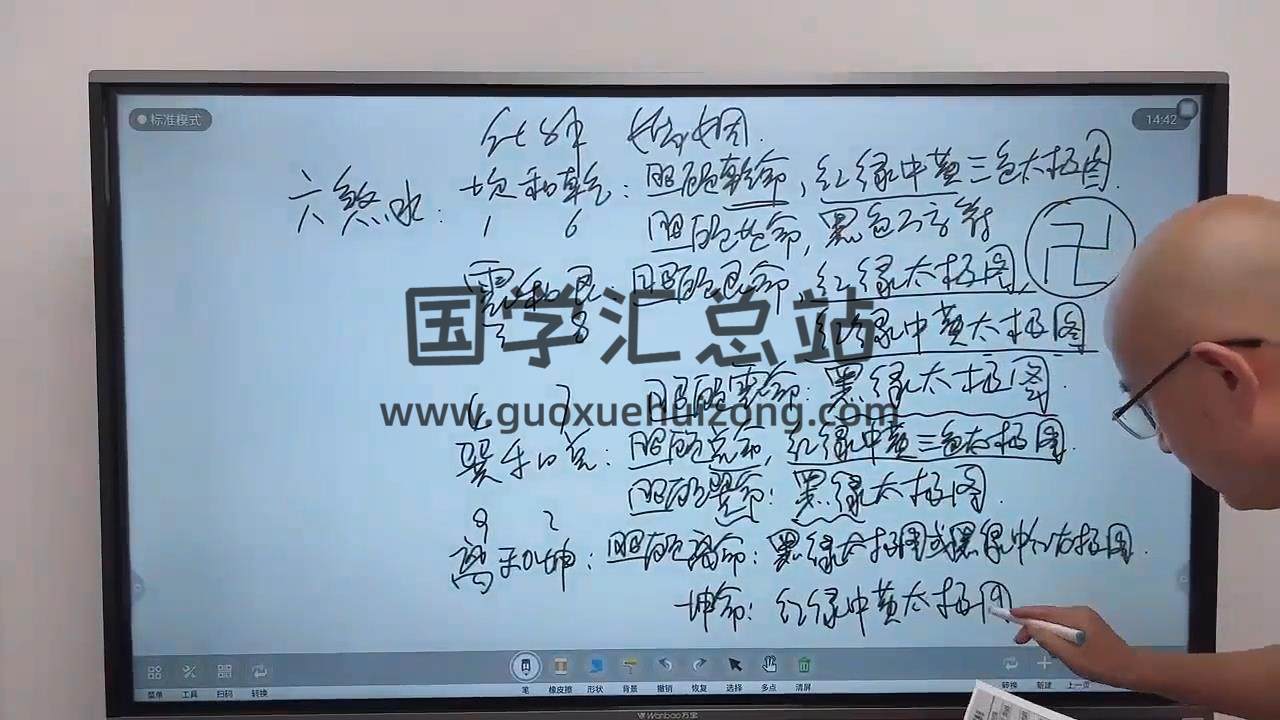 标准模式
14:42
化解 婚姻
六煞水: 坎和乾: 胆的乾命, 红绿中黄三色太极图
1 6 胆的坎命, 黑色万字符 卍
震和艮: 胆的艮命, 红绿太极图,
3 8 红绿中黄太极图
国学汇总站
www.guoxuehuizong.com
胆的震命: 黑绿太极图.
4 7
巽和兑: 胆的兑命, 红绿中黄三色太极图.
胆的巽命: 黑绿太极图.
9 2
离和坤: 胆的离命: 黑绿太极图或黑绿中红太极图.
坤命: 红绿中黄太极图
菜单 工具 扫码 转换 笔 橡皮擦 形状 背景 撤销 恢复 选择 多点 清屏 转换 新建 上一页
Wanbao万宝